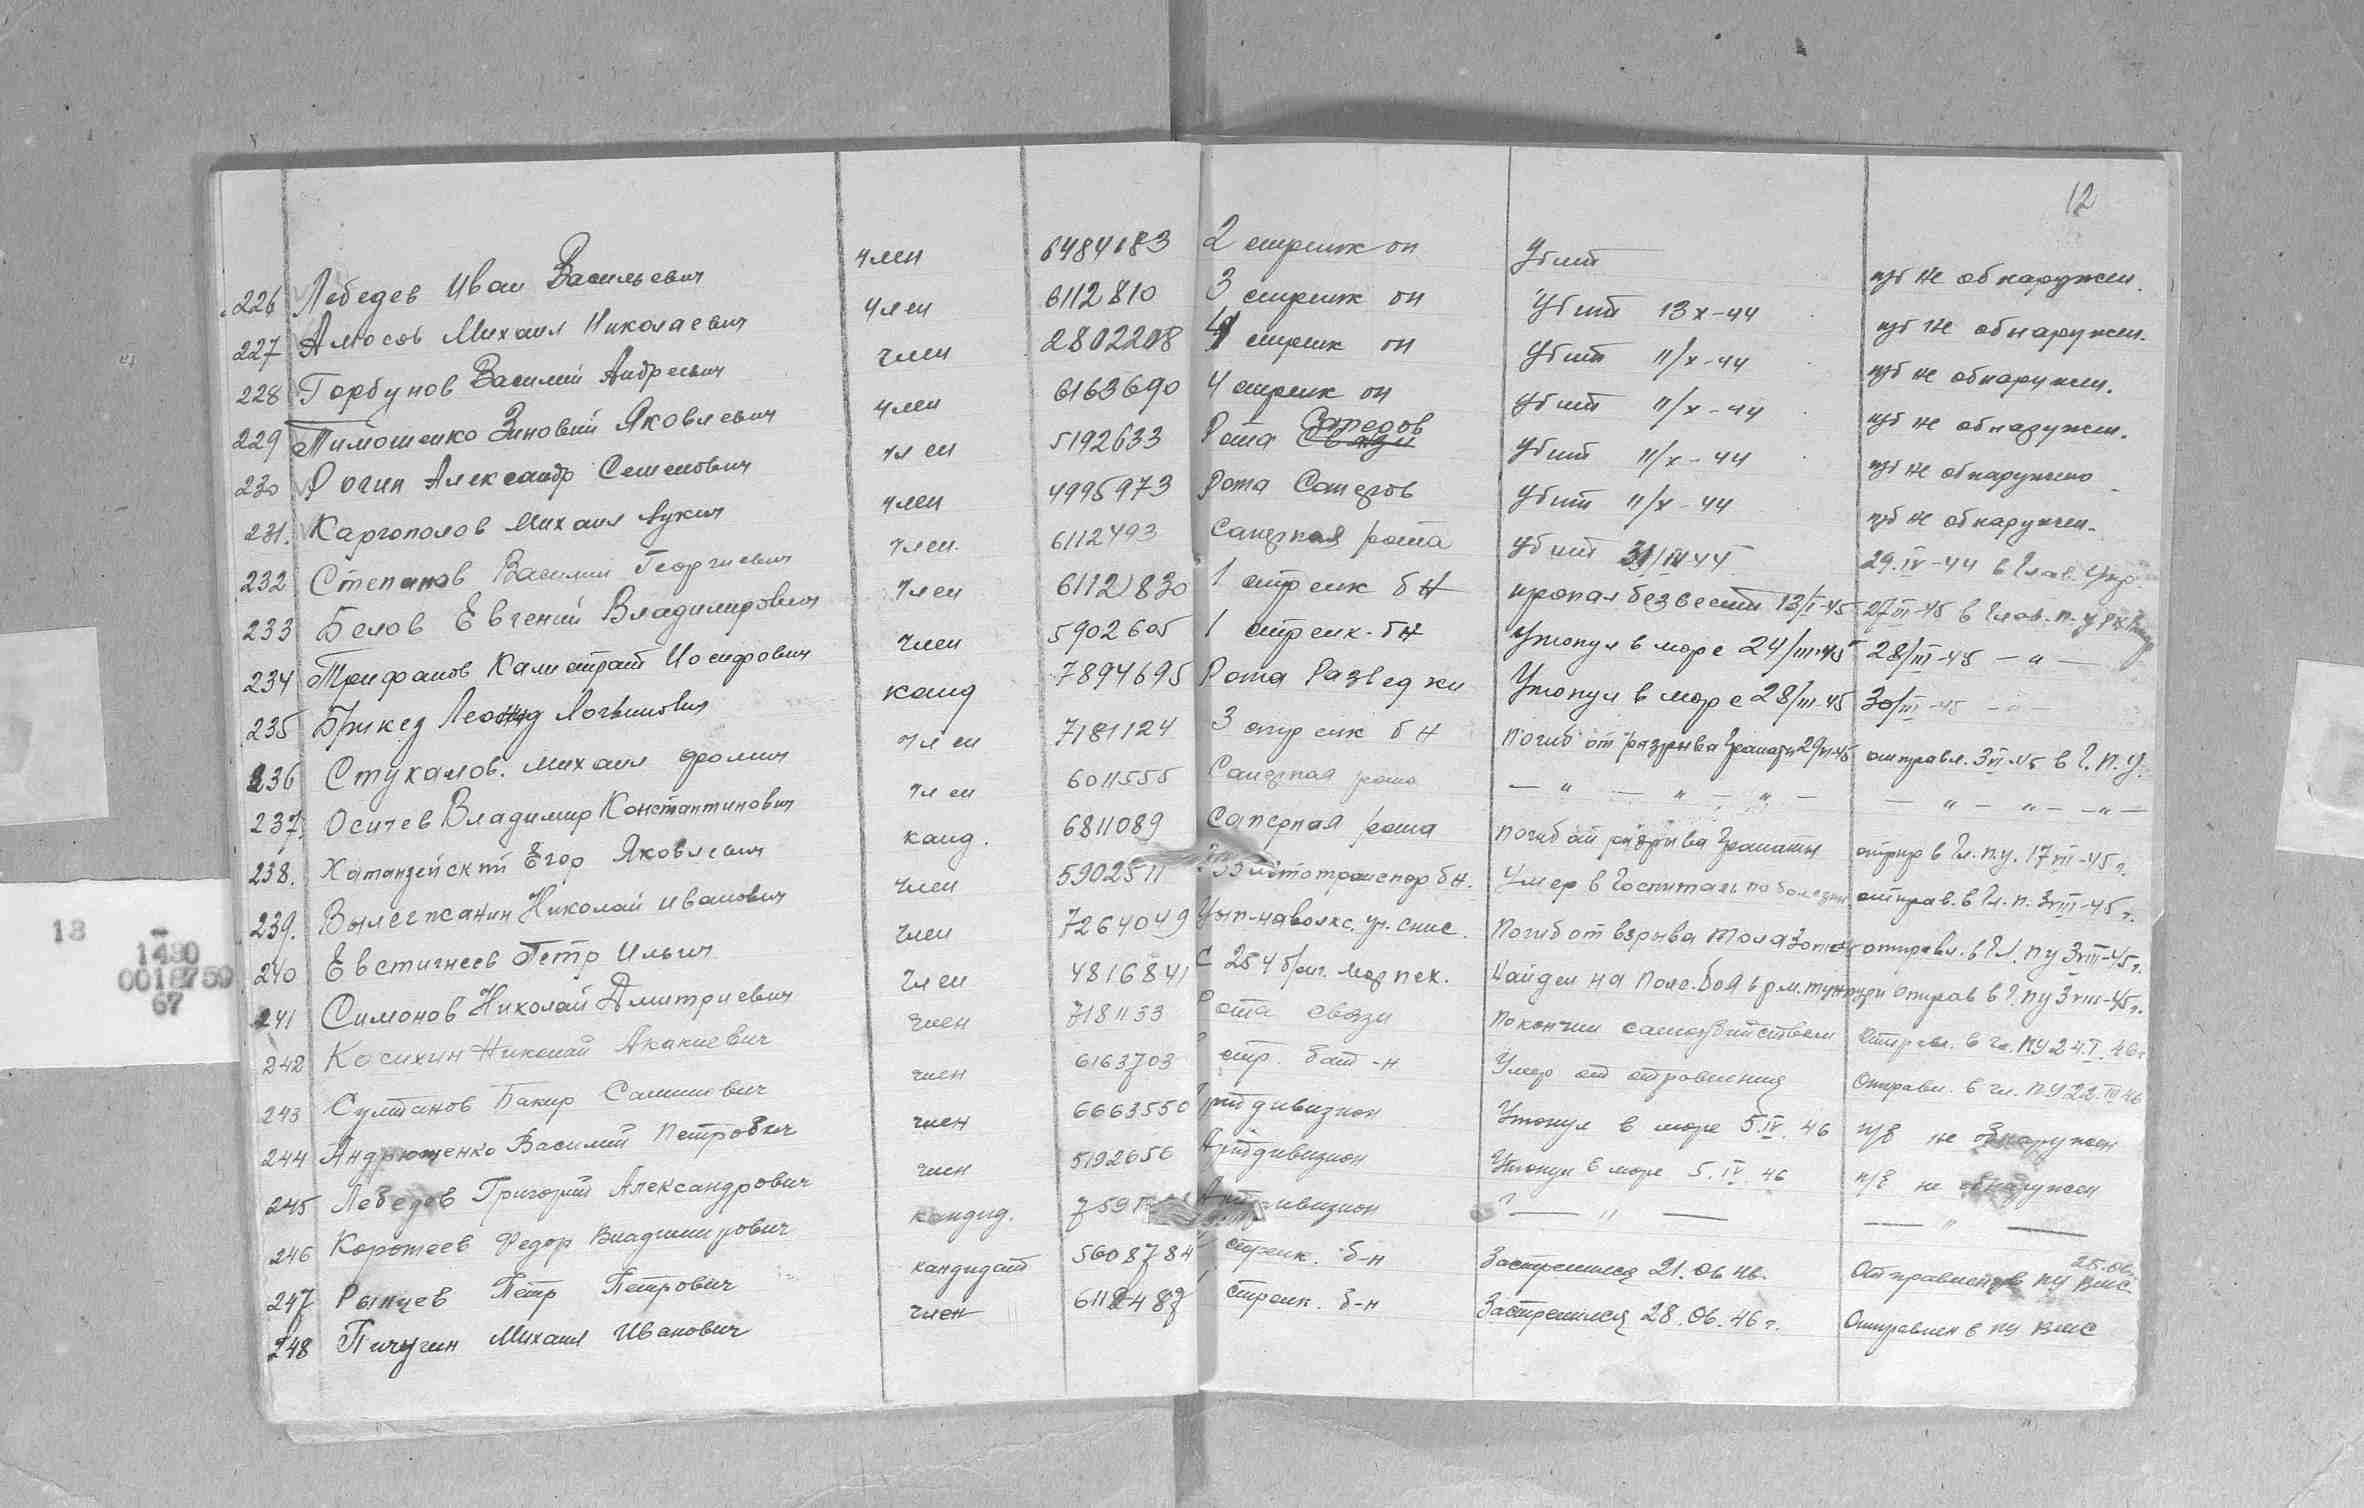 12
226 Лебедев Иван Васильевич член 6484183 2 стрелк он Убит п/б не обнаружен.
227 Амосов Михаил Николаевич член 6112810 3 стрелк он Убит 13 X-44 п/б не обнаружен.
228 Горбунов Василий Андреевич член 2802208 4 стрелк он Убит 11/X-44 п/б не обнаружен.
229 Тимошенко Зиновий Яковлевич член 6163690 4 стрелк он Убит 11/X-44 п/б не обнаружен.
230 Рогин Александр Семенович член 5192633 Рота Связи Саперов Убит 11/X-44 п/б не обнаружено
231. Каргополов Михаил Лукич член 4995973 Рота Саперов Убит 11/X-44 п/б не обнаружен.
232 Степанов Василий Георгиевич член. 6112493 Саперная рота Убит 44 29.IV-44 в Глав. Упр.
233 Белов Евгений Владимирович член 6112830 1 стрелк бН пропал без вести 13/I-45 27 III-45 в Глав. п. у
234 Трифанов Калистрат Иосифович член 5902605 1 стрелк. бН Утонул в море 24/III-45 28/III-45 — " —
235 Леонид Логвинович канд 7894695 Рота Разведки Утонул в море 28/III-45 30/III-45 — " —
236 Стукалов. Михаил Фролич член 7181124 3 стрелк бН Погиб от разрыва Гранаты 29 VI-45 отправл. 3 VI-45 в Г.П.У.
237. Осичев Владимир Константинович член 6011555 Саперная рота — " — " — " — — " — " — " —
238. Хатанзейский Егор Яковлевич канд. 6811089 Саперная рота Погиб от разрыва Гранаты отпр в Гл. п.у. 17 III-45 г.
239. Вылегжанин Николай Иванович член 5902511 Автотранспор бн. Умер в Госпитале по болезни отправ. в Гл. п. 3 VIII-45 г.
240 Евстигнеев Петр Ильич член 7264049 Цып-наволкс. ур. Погиб от взрыва отправл. в Гл. ПУ 3 VIII-45 г.
241 Симонов Николай Дмитриевич член 4816841 С 254 бриг. Мор пех. Найден на Поле. боя отправ в Г. ПУ 3 VIII-45 г.
242 Косихин Николай Акакиевич член 7181133 Рота связи Покончил самоубийством Отправл. в гл. ПУ 24.I.46 г
243 Султанов Бакир член 6163703 стр. бат-н Умер от отравления Отправл. в гл. ПУ 22.III 46
244 Андрющенко Василий Петрович член 6663550 Артдивизион Утонул в море 5.IV.46 п/б не обнаружен
245 Лебедев Григорий Александрович член 5192656 Артдивизион Утонул в море 5.IV.46 п/б не обнаружен
246 Коротеев Федор Владимирович кандид. 7591 Артдивизион — " — — " —
247 Рынцев Петр Петрович кандидат 5608784 стрелк. б-н Застрелился 21.06.46. Отправлен в ПУ ВМС 25.06.
248 Пичугин Михаил Иванович член 6112487 стрелк. б-н Застрелился 28.06.46 г. Отправлен в ПУ ВМС
13
1430
0018759
67